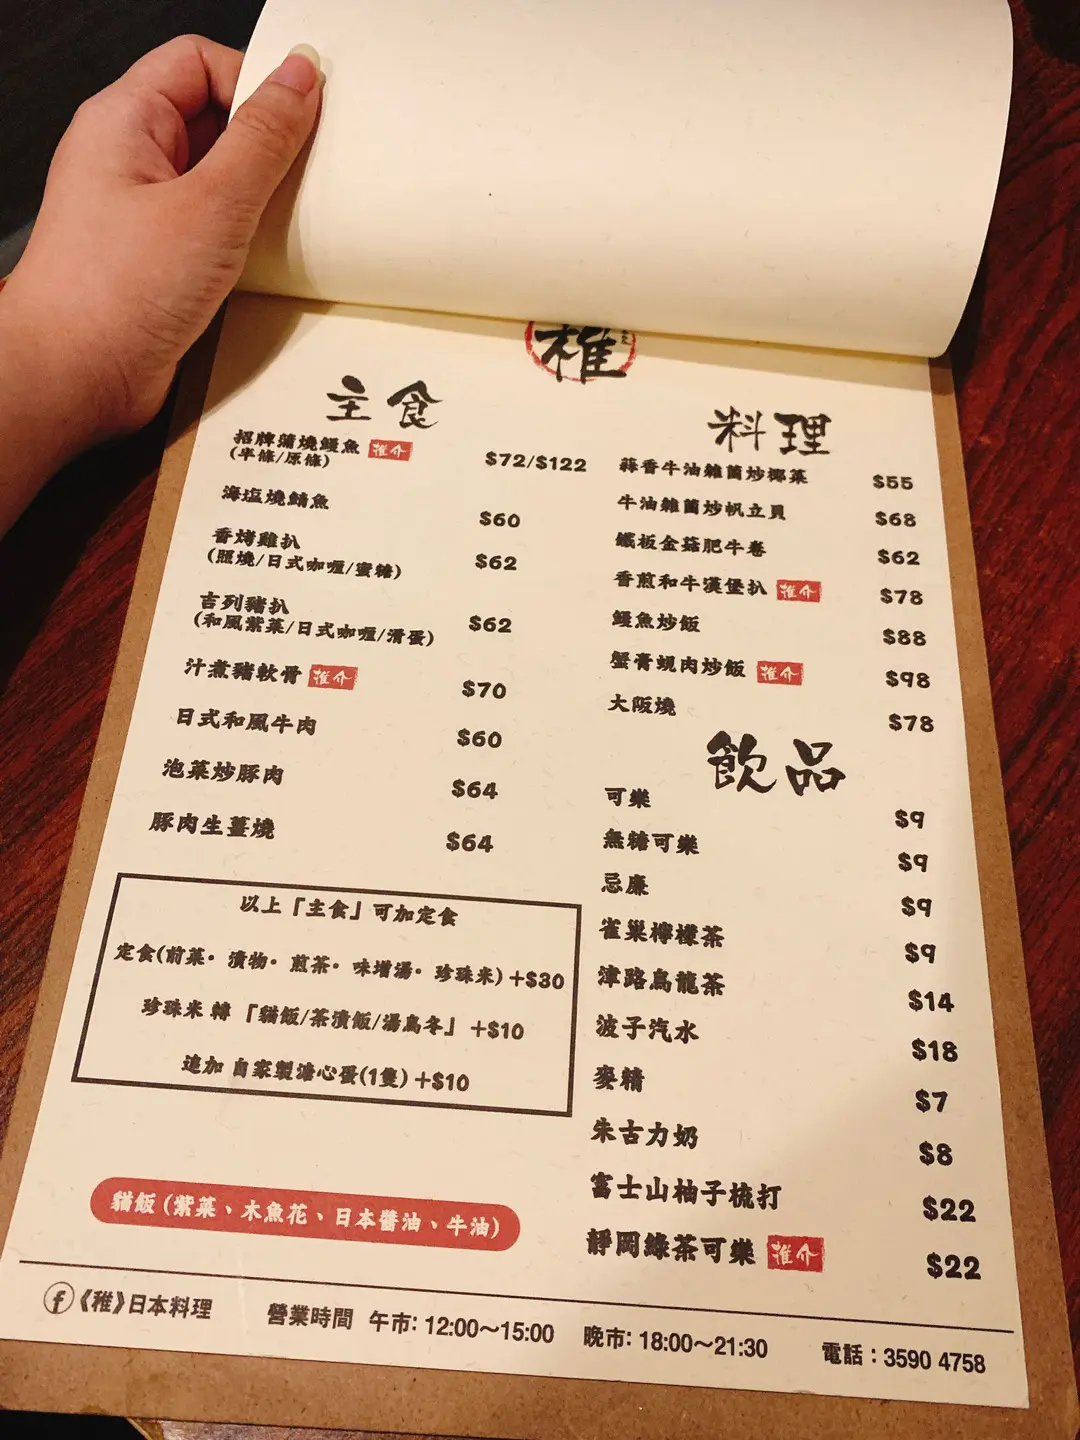 稚
主食
招牌蒲燒鰻魚 推介
(半條/原條) $72/$122
海塩燒鯖魚 $60
香烤雞扒
(照燒/日式咖喱/蜜糖) $62
吉列豬扒
(和風紫菜/日式咖喱/滑蛋) $62
汁煮豬軟骨 推介 $70
日式和風牛肉 $60
泡菜炒豚肉 $64
豚肉生薑燒 $64
以上「主食」可加定食
定食(前菜・漬物・煎茶・味增湯・珍珠米) +$30
珍珠米 轉 「貓飯/茶漬飯/湯烏冬」 +$10
追加 自家製溏心蛋(1隻) +$10
貓飯 (紫菜、木魚花、日本醬油、牛油)
料理
蒜香牛油雜菌炒椰菜 $55
牛油雜菌炒帆立貝 $68
鐵板金菇肥牛卷 $62
香煎和牛漢堡扒 推介 $78
鰻魚炒飯 $88
蟹膏蜆肉炒飯 推介 $98
大阪燒 $78
飲品
可樂 $9
無糖可樂 $9
忌廉 $9
雀巢檸檬茶 $9
津路烏龍茶 $14
波子汽水 $18
麥精 $7
朱古力奶 $8
富士山柚子梳打 $22
靜岡綠茶可樂 推介 $22
《稚》日本料理 營業時間 午市: 12:00～15:00 晚市: 18:00～21:30 電話：3590 4758